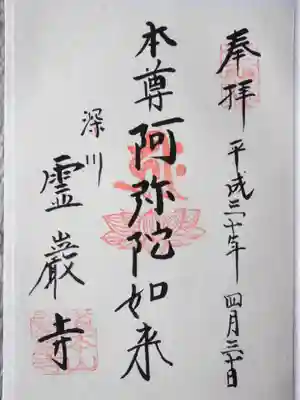 奉拝
平成二十年 四月三十日
本尊阿弥陀如来
深川
霊巌寺